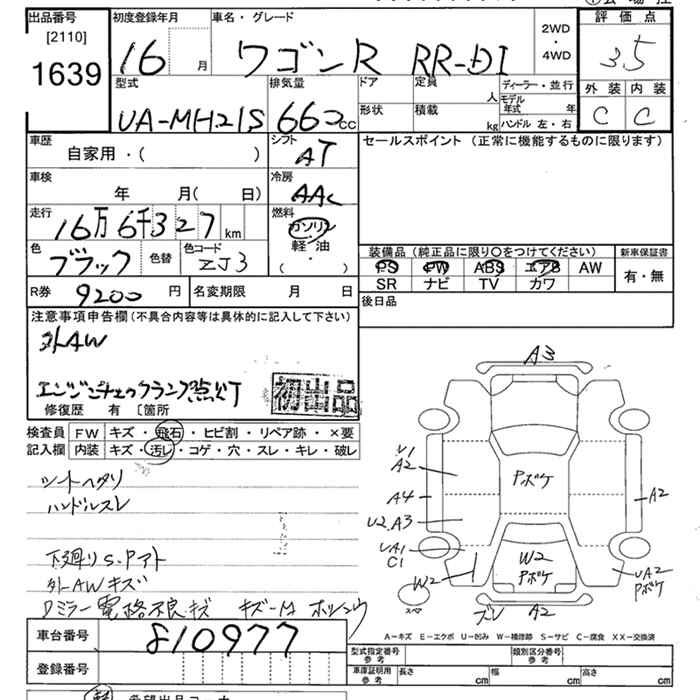 出品番号 初度登録年月 車名・グレード 2WD・4WD 評価点
[2110]
1639 16 月 ワゴンR RR-DI 3.5
型式 排気量 ドア 定員 人 ディーラー・並行 外装 内装
UA-MH21S 660cc 形状 積載 kg モデル年式 年 ハンドル 左・右 C C
車歴 シフト セールスポイント (正常に機能するものに限ります)
自家用・( ) AT
車検 冷房
年 月( 日) AAC
走行 燃料
16万6千327km ガソリン・軽油
色 色替 色コード ( ) 装備品(純正品に限り○をつけてください) 新車保証書
ブラック ZJ3 PS PW ABS エアB AW 有・無
SR ナビ TV カワ
R券 9200円 名変期限 月 日 後日品
注意事項申告欄(不具合内容等は具体的に記入して下さい)
外AW
エンジンチェックランプ点灯 初出品
修復歴 有 [箇所
検査員 FW キズ・飛石・ヒビ割・リペア跡・×要
記入欄 内装 キズ・汚レ・コゲ・穴・スレ・キレ・破レ
シートヘタリ
ハンドルスレ
下廻りS.Pアト
外AWキズ
Dミラー電格不良・キズ キズ-M
A3
U1
A2
A4
U2.A3
UA1
C1
W2
Pボケ
A2
W2
Pボケ
UA2
Pボケ
スペア
ズレ A2
車台番号 810977
A-キズ E-エクボ U-凹み W-補修跡 S-サビ C-腐食 XX-交換済
登録番号 型式指定番号 参考 類別区分番号 参考
車庫証明用 参考 長さ cm 幅 cm 高さ cm